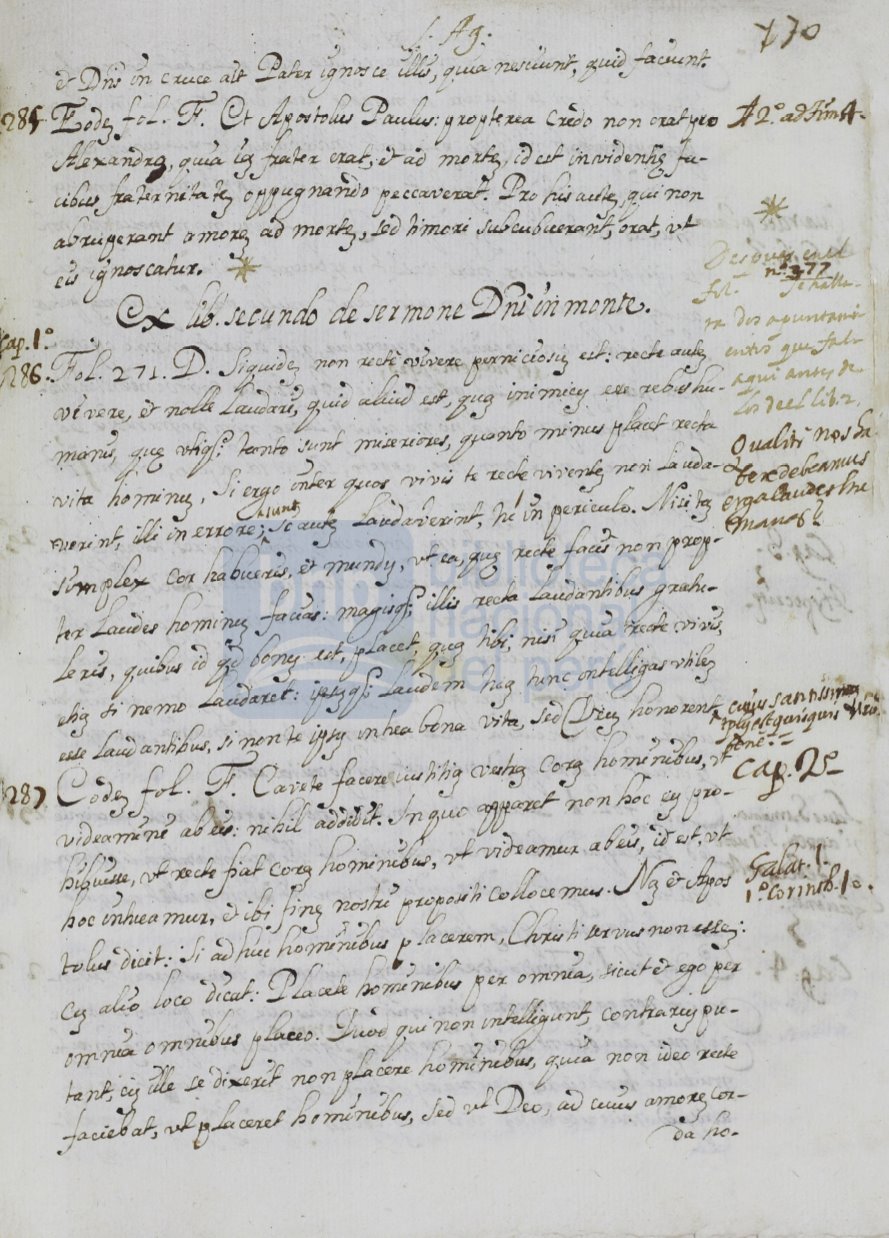 S. Ag.
170
et Dñs in cruce ait Pater ignosce illis, quia nesciunt, quid faciunt.
285. Eodẽ fol. F. Et Apostolus Paulus: propterea credo non orat pro
A 2.º ad Tim 4.
Alexandro, quia iã frater erat, et ad mortẽ, id est invidentiã fu-
cibus fraternitatẽ oppugnando peccaverat. Pro his autẽ, qui non
abruperant amorẽ ad mortẽ, sed timori subcubuerant, orat, vt
eis ignoscatur.
n.º 377
Se halla-
ra dos apuntami-
entos que fal-
aqui antes de
los de el lib. 2.
Ex lib. secundo de sermone Dñi in monte.
Cap. 1.º
286. Fol. 271. D. Siquidẽ non recte vivere perniciosũ est: recte autẽ
vivere, et nolle laudari, quid aliud est, quã inimicũ esse rebus hu-
manis, quę vtiq; tanto sunt miseriores, quanto minus placet recta
vita hominũ. Si ergo inter quos vivis te recte viventẽ non lauda-
verint, illi in errore sunt; si autẽ laudaverint, tu in periculo. Nisi tã
simplex cor habueris, et mundũ, vt ea, quę recte facis non prop-
ter laudes hominũ facias: magisq; illis recta laudantibus gratu-
leris, quibus id qd bonũ est, placet, quã tibi, nisi quia recte vivis,
etiã si nemo laudaret: ipsãq; laudem tuã tunc intelligas vtilẽ
esse laudantibus, si non te ipsũ in hea bona vita, sed Deũ honorent,
Qualiter nos ha-
bere debeamus
erga laudes hu-
manas?
cuius santissimũ
templũ est quisquis vivit
bene.
Cap. 2.º
287. Eodẽ fol. F. Cavete facere iustitiã vestrã corã hominibus, vt
videamini ab eis: nihil addidit. In quo apparet non hoc eũ pro-
hibuisse, vt recte fiat corã hominibus, vt videamur ab eis, id est, vt
hoc intueamur, et ibi finẽ nostri propositi collocemus. Nã et Apos
Galat. 1.
1.º Corinth. 10.
tolus dicit: Si adhuc hominibus placerem, Christi servus non essẽ:
Cũ alio loco dicat: Placete hominibus per omnia, sicut et ego per
omnia omnibus placeo. Quod qui non intelligunt, contrariũ pu-
tant; cũ ille se dixerit non placere hominibus, quia non ideo recte
faciebat, vt placeret hominibus, sed vt Deo, ad cuius amorẽ cor-
da ho-
biblioteca
nacional
del perú